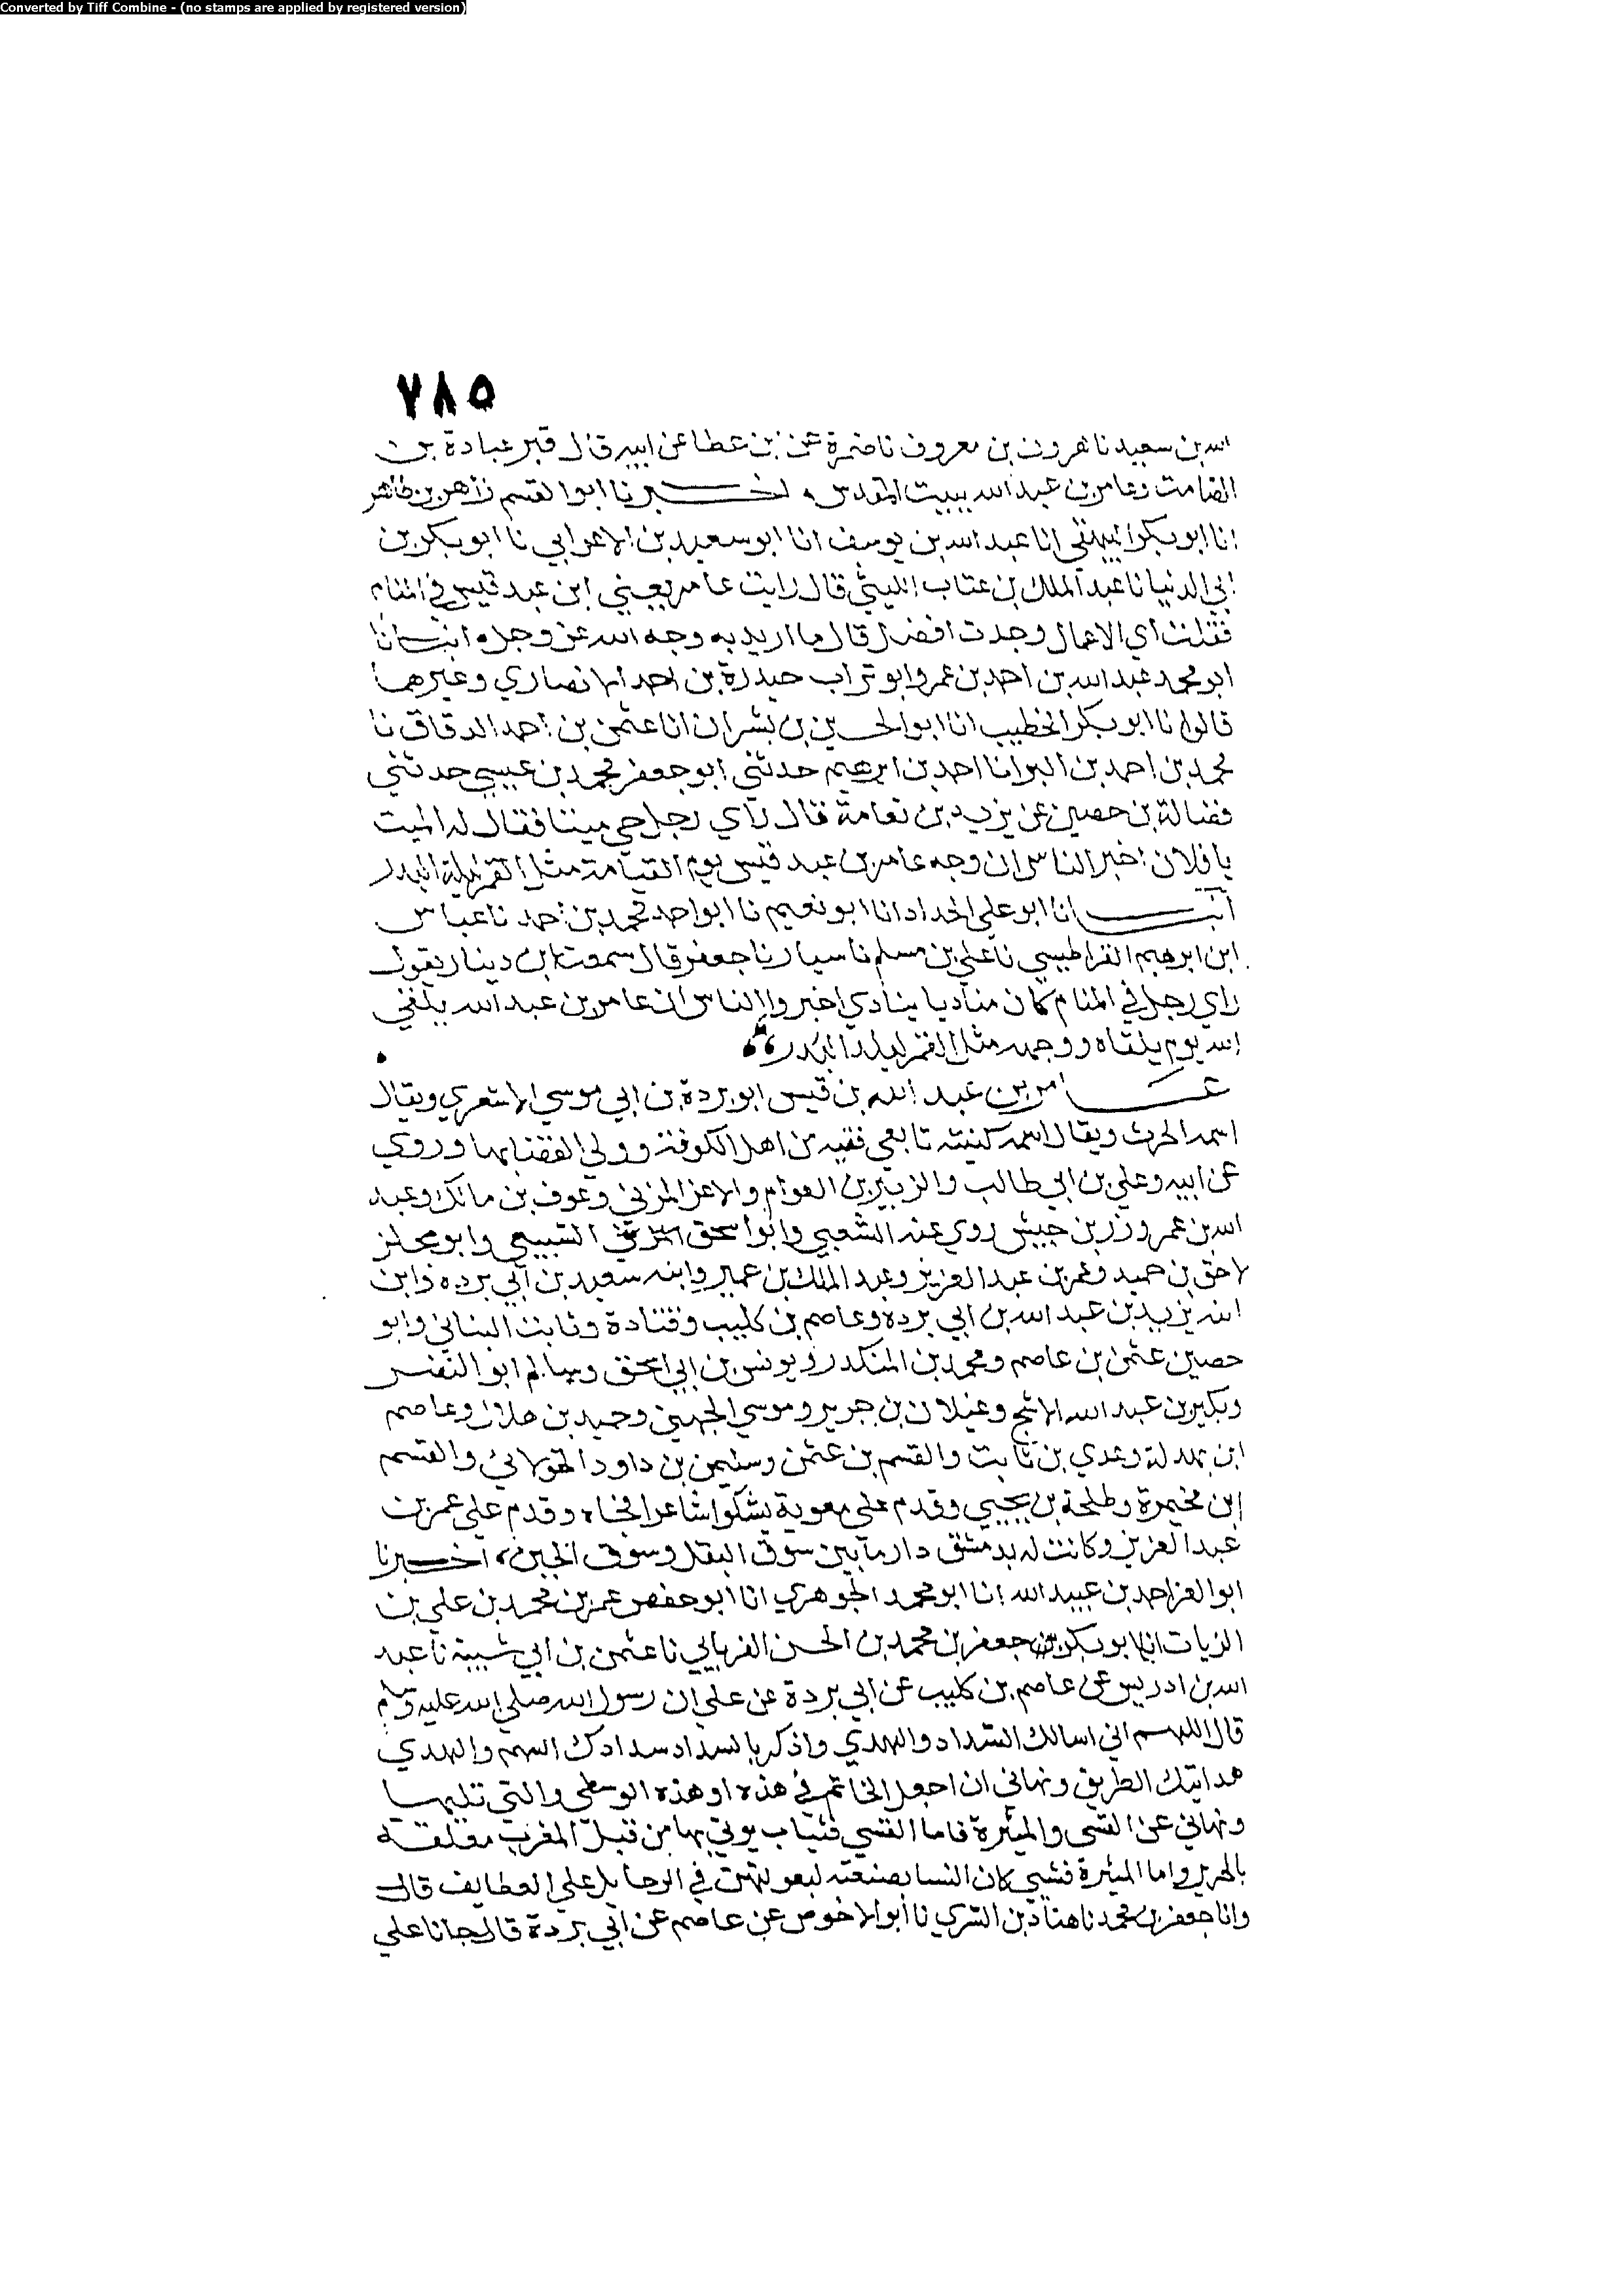 Converted by Tiff Combine - (no stamps are applied by registered version)
٧٨٥
الله بن سعيد نا هرون بن معروف نا ضمرة عن بن عطا عن ابيه قال قبر عبادة بن
الصامت وعامر بن عبد الله ببيت المقدس اخبرنا ابوالقسم زاهر بن طاهر
انا ابو بكر البيهقي انا عبد الله بن يوسف انا ابو سعيد بن الاعرابي نا ابو بكر بن
ابي الدنيا نا عبد الملك بن عتاب الليثي قال رايت عامر يعني ابن عبد قيس في المنام
فقلت اي الاعمال وجدت افضل قال ما اريد به وجه الله عز وجل انبانا
ابو محمد عبد الله بن احمد بن عمر وابو تراب حيدرة بن احمد الانصاري وغيرهما
قالوا نا ابو بكر الخطيب انا ابو الحسين بن بشران انا عثمن بن احمد الدقاق نا
محمد بن احمد بن البرا نا احمد بن ابرهيم حدثني ابو جعفر محمد بن عيسى حدثني
فضالة بن حصين عن يزيد بن نعامة قال راي رجل حي ميتا فقال له الميت
يا فلان اخبر الناس ان وجه عامر بن عبد قيس يوم القيامة مثل القمر ليلة البدر
انبانا ابو علي الحداد انا ابو نعيم نا ابو احمد محمد بن احمد نا عباس
ابن ابرهيم القراطيسي نا علي بن مسلم نا سيار نا جعفر قال سمعت ابن دينار يقول
راي رجل في المنام كان مناديا ينادي اخبروا الناس ان عامر بن عبد الله يلقى
الله يوم يلقاه ووجهه مثل القمر ليلة البدر
عامر بن عبد الله بن قيس ابو بردة بن ابي موسى الاشعري ويقال
اسمه الحرث ويقال اسمه كنيته تابعي فقيه من اهل الكوفة وولي القضا بها وروي
عن ابيه وعلي بن ابي طالب والزبير بن العوام والاغر المزني وعوف بن مالك وعبد
الله بن عمر وزر بن حبيش روي عنه الشعبي وابو اسحق السبيعي وابو مجلز
لاحق بن حميد وعمر بن عبد العزيز وعبد الملك بن عمير وابنه سعيد بن ابي برده وابن
ابنه يزيد بن عبد الله بن ابي برده وعاصم بن كليب وقتادة وثابت البناني وابو
حصين عثمن بن عاصم ومحمد بن المنكدر ويونس بن ابي اسحق وسالم ابو النضر
وبكير بن عبد الله الاشج وغيلان بن جرير وموسي الجهني وحميد بن هلال وعاصم
ابن بهدلة وعدي بن ثابت والقسم بن عثمن وسليمن بن داود الخولاني والقسم
ابن مخيمرة وطلحة بن يحيي وقدم علي معوية يشكوا شاعرا هجاه وقدم علي عمر بن
عبد العزيز وكانت له بدمشق دار ما بين سوق البقل وسوق الجبن اخبرنا
ابو العز احمد بن عبيد الله انا ابو محمد الجوهري انا ابو حفص عمر بن محمد بن علي بن
الزيات انا ابو بكر جعفر بن محمد بن الحسن الفريابي نا عثمن بن ابي شيبة نا عبد
الله بن ادريس عن عاصم بن كليب عن ابي بردة عن علي ان رسول الله صلي الله عليه وسلم
قال اللهم اني اسالك السداد والهدي واذكر بالسداد سدادك السهم والهدي
هدايتك الطريق ونهاني ان اجعل الخاتم في هذه او هذه الوسطي والتي تليها
ونهاني عن القسي والميثرة فاما القسي فثياب يوتي بها من قبل المغرب معلقة
بالحرير واما الميثرة فشي كان النسا يصنعنه لبعولتهن في الرحا يل علي العطايف قال
وانا جعفر بن محمد نا هناد بن السري نا ابو الاخوص عن عاصم عن ابي بردة قال جانا علي